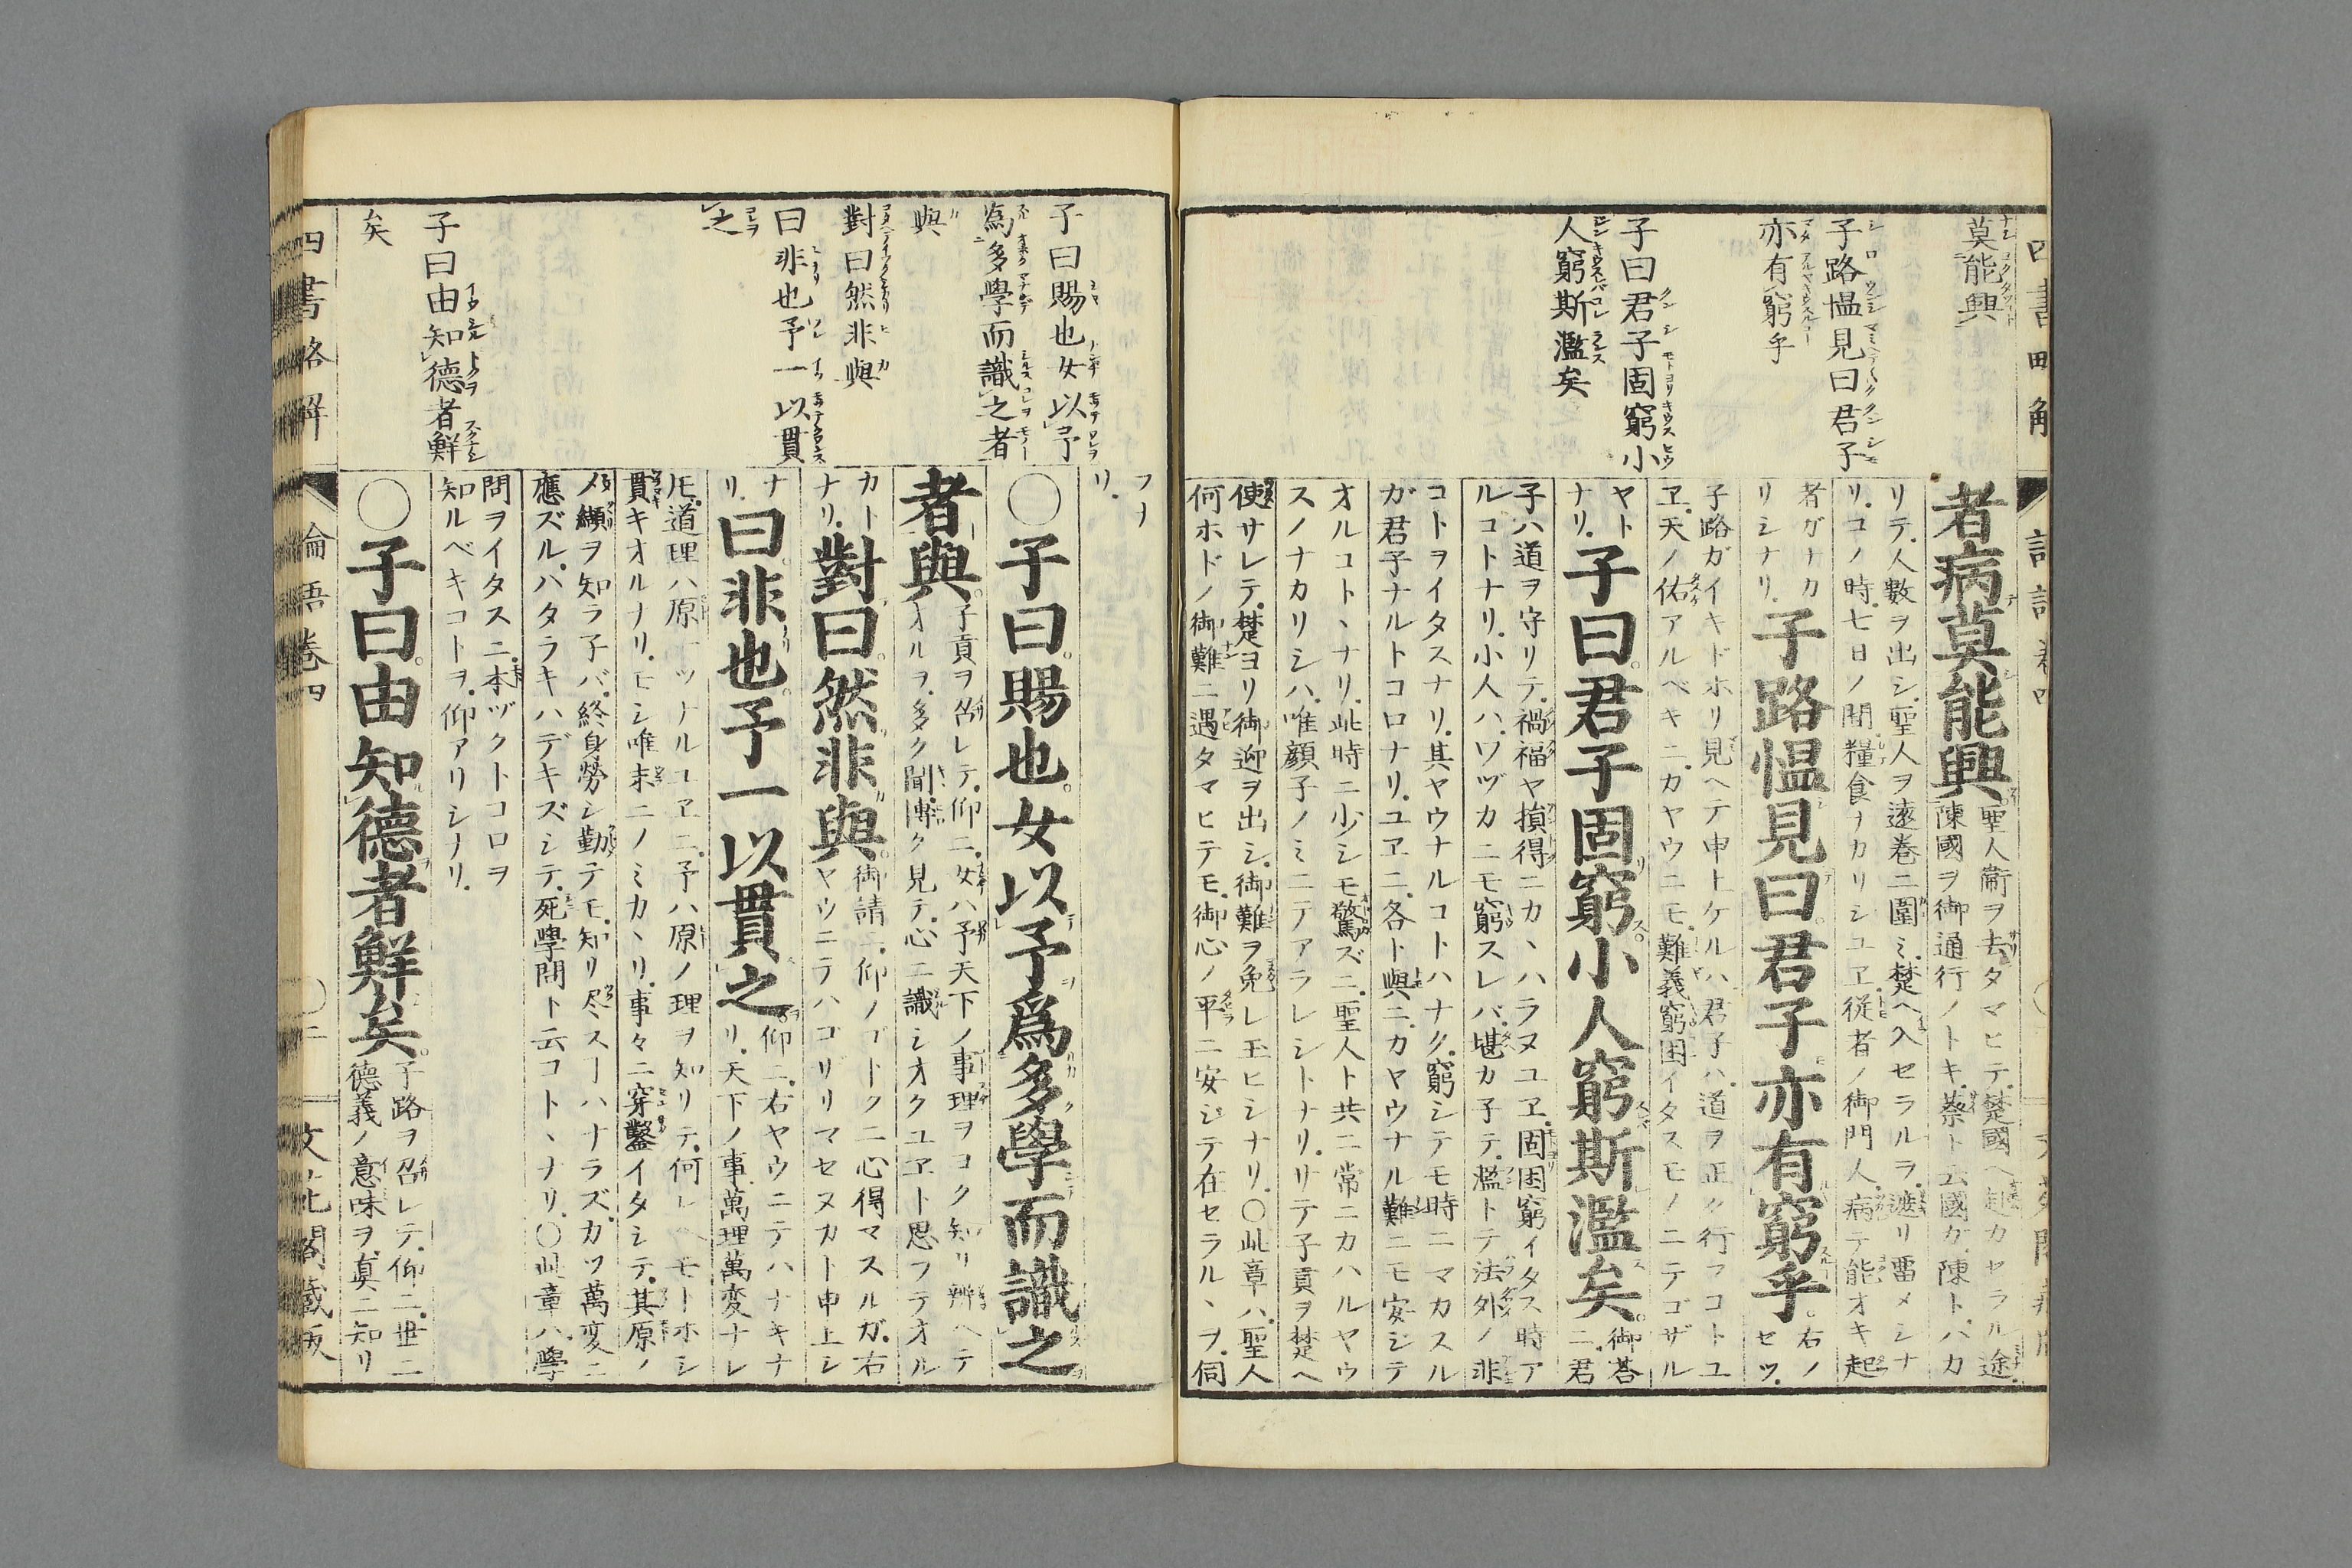 四書略解
莫能興
子路慍見曰君子
亦有窮乎
子曰君子固窮小
人窮斯濫矣
者病莫能興
聖人衞ヲ去タマヒテ楚國ヘ赴カセラル途
陳國ヲ御通行ノトキ蔡ト云國カ陳トハカ
リテ人數ヲ出シ聖人ヲ遠巻ニ圍ミ楚ヘ入セラルヲ遮リ畱メシナ
リコノ時七日ノ間糧食ナカリシユヱ従者ノ御門人病テ能オキ起
者ガナカ
リシナリ
子路慍見曰君子亦有窮乎
右ノ
セツ
子路ガイキドホリ見ヘテ申上ケルハ君子ハ道ヲ正ク行フコトユ
ヱ天ノ佑アルベキニカヤウニモ難義窮困イタスモノニテゴザル
ヤト
ナリ
子曰君子固窮小人窮斯濫矣
御荅
ニ君
子ハ道ヲ守リテ禍福ヤ損得ニカヽハラヌユヱ固困窮イタス時ア
ルコトナリ小人ハワヅカニモ窮スレバ堪カ子テ濫トテ法外ノ非
コトヲイタスナリ其ヤウナルコトハナク窮シテモ時ニマカスル
ガ君子ナルトコロナリユヱニ各ト與ニカヤウナル難ニモ安シテ
オルコトヽナリ此時ニ少シモ驚ズニ聖人ト共ニ常ニカハルヤウ
スノナカリシハ唯顔子ノミニテアラレシトナリサテ子貢ヲ楚ヘ
使サレテ楚ヨリ御迎ヲ出シ御難ヲ免レ玉ヒシナリ○此章ハ聖人
何ホドノ御難ニ遇タマヒテモ御心ノ平ニ安シテ在セラルヽヲ伺
子曰賜也女以予
為多學而識之者
與
對曰然非與
曰非也予一以貫
之
子曰由知德者鮮
矣
フナ
リ
○子曰賜也女以予爲多學而識之
者與
子貢ヲ召レテ仰ニ女ハ予天下ノ事理ヲコク知リ辨ヘテ
オルヲ多ク聞博ク見テ心ニ識シオクユヱト思フテオル
カト
ナリ
對曰然非與
御請ニ仰ノゴトクニ心得マスルガ右
ヤウニテハゴリリマセヌカト申上シ
ナ
リ
曰非也予一以貫之
仰ニ右ヤウニテハナキナ
リ天下ノ事萬理萬変ナレ
𪜈道理ハ原一ツナルユヱニ予ハ原ノ理ヲ知リテ何レヘモトホシ
貫キオルナリモシ唯末ニノミカヽリ事々ニ穿鑿イタシテ其原ノ
ヲ知ラ子バ終身勞シ勤テモ知リ尽スーハナラズカツ萬変ニ
應ズルハタラキハデキズシテ死學問ト云コトヽナリ○此章ハ學
問ヲイタスニ本ヅクトコロヲ
知ルベキコトヲ仰アリシナリ
○子曰由知德者鮮矣
子路ヲ召レテ仰ニ世ニ
德義ノ意味ヲ真ニ知リ
四書略解
論語卷四
○二
文苑閣藏板